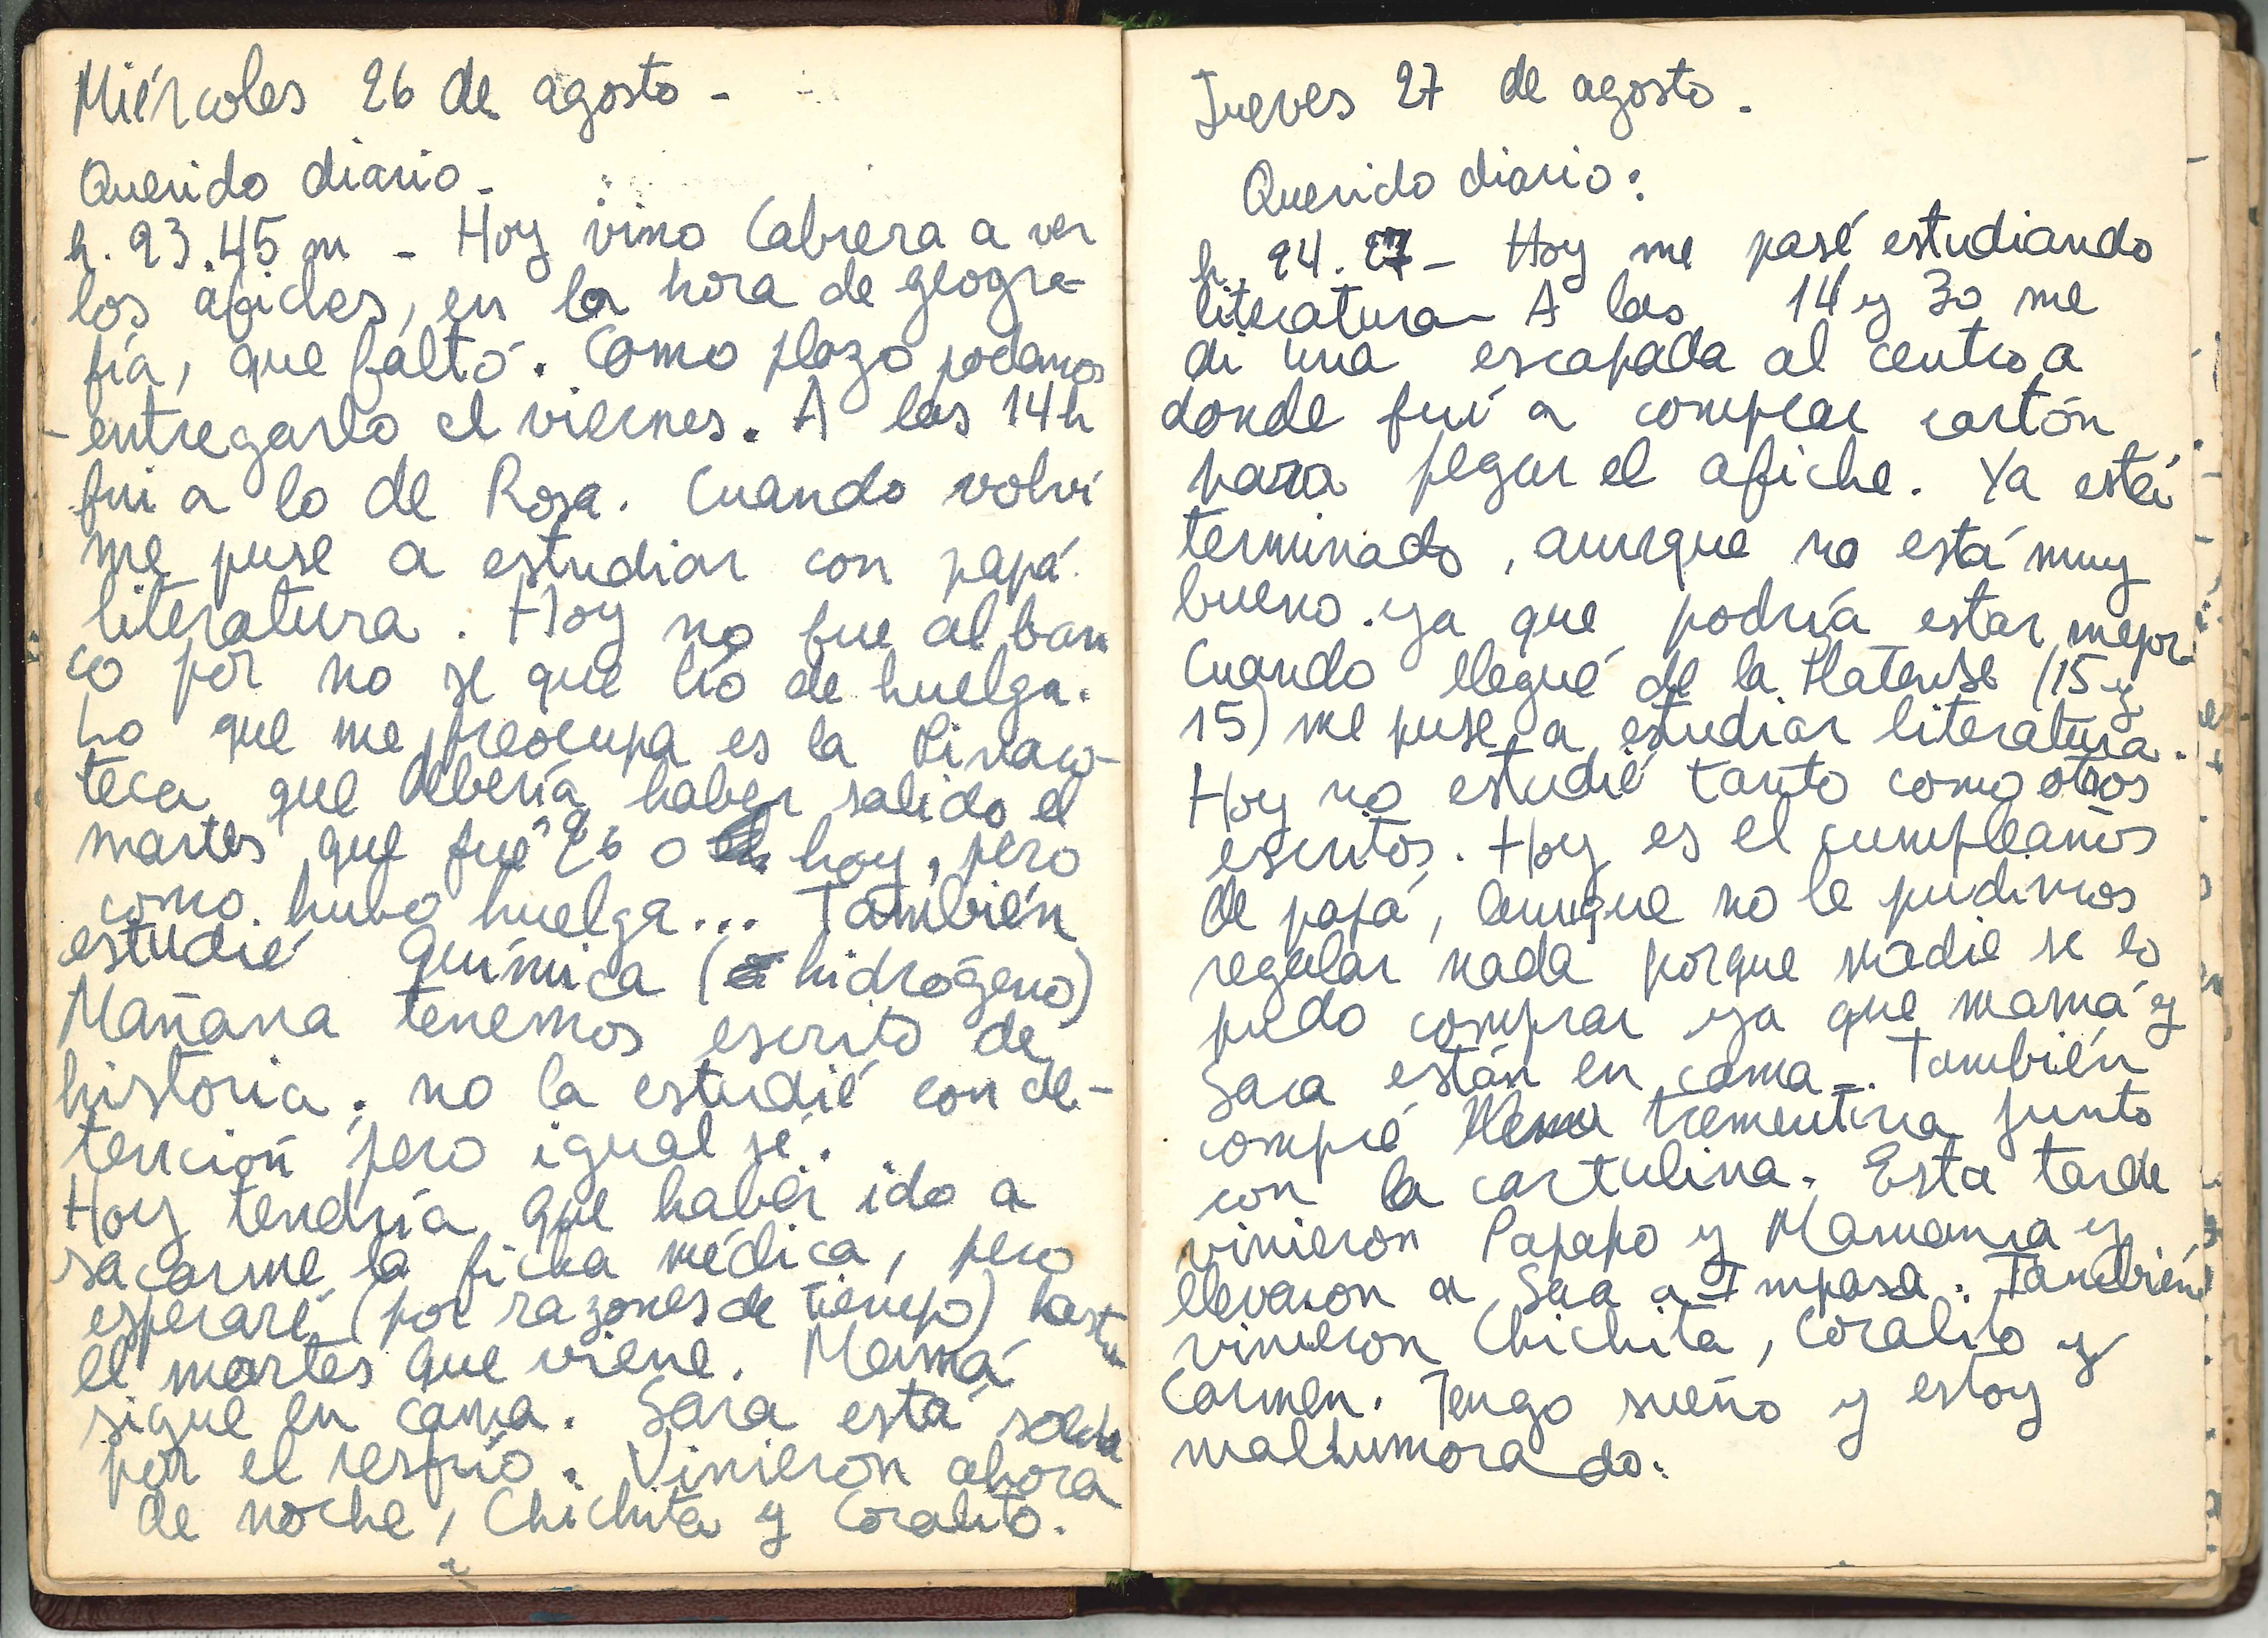 Miércoles 26 de agosto -
Querido diario -
h. 23.45 m - Hoy vino Cabrera a ver
los afiches, en la hora de geogra-
fía, que faltó. Como plazo podamos
entregarlo el viernes. A las 14 h
fui a lo de Rosa. Cuando volví
me puse a estudiar con papá
literatura. Hoy no fue al ban
co por no se que lío de huelga.
Lo que me preocupa es la Pinaco-
teca que debería haber salido el
martes que fue 26 o hoy, pero
como hubo huelga... También
estudié Química (hidrógeno)
Mañana tenemos escrito de
historia. no la estudié con de-
tención pero igual sé.
Hoy tendría que haber ido a
sacarme la ficha médica, pero
esperaré (por razones de tiempo) hasta
el martes que viene. Mamá
sigue en cama. Sara está
por el resfrío. Vinieron ahora
de noche, Chichita y Coralito.
Jueves 27 de agosto.
Querido diario:
h. 24.27 - Hoy me pasé estudiando
literatura - A las 14 y 30 me
di una escapada al centro a
donde fuí a comprar cartón
para pegar el afiche. Ya está
terminado, aunque no está muy
bueno. ya que podría estar mejor.
Cuando llegué de la Platense (15 y
15) me puse a estudiar literatura.
Hoy no estudié tanto como otros
escritos. Hoy es el cumpleaños
de papá, aunque no le pudimos
regalar nada porque nadie se lo
pudo comprar ya que mamá y
Sara están en cama -. También
compré trementina junto
con la cartulina. Esta tarde
vinieron Papapo y Mamama y
llevaron a Sara a Impasa. También
vinieron Chichita, Coralito y
Carmen. Tengo sueño y estoy
malhumorado.